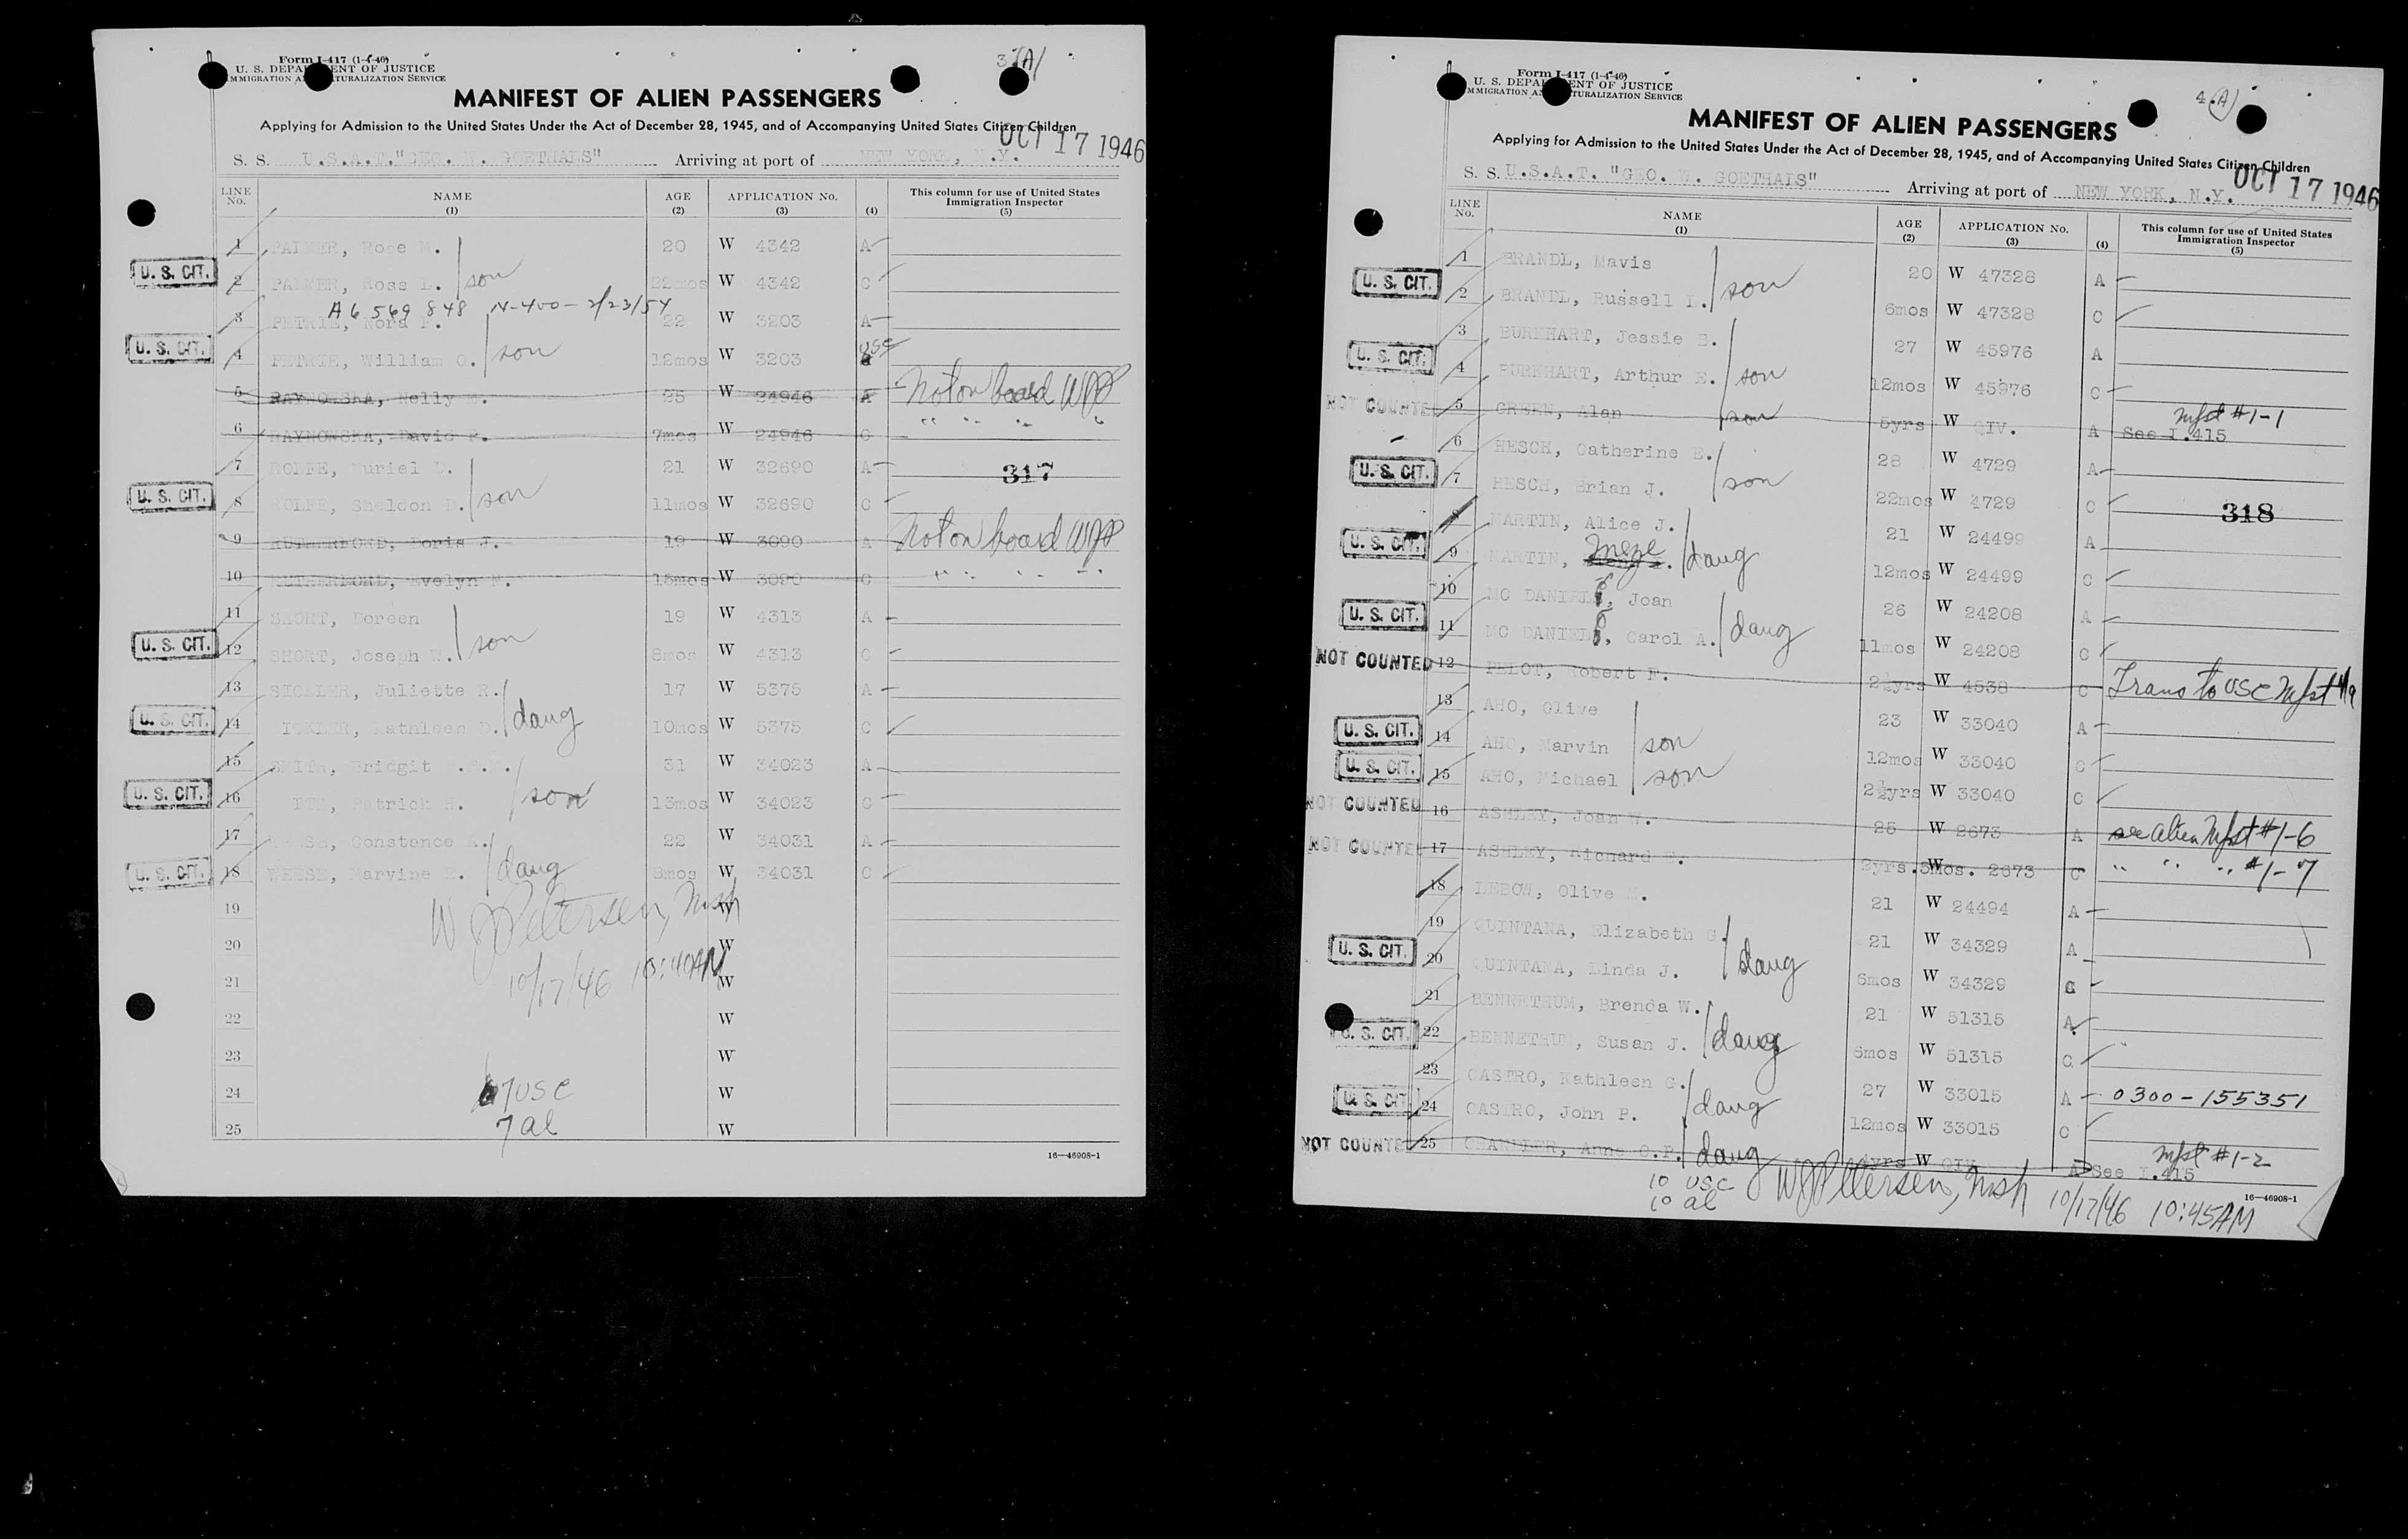 3 (A)
Form I-417 (1-4-46)
U. S. DEPA ENT OF JUSTICE
MMIGRATION A TURALIZATION SERVICE
MANIFEST OF ALIEN PASSENGERS
Applying for Admission to the United States Under the Act of December 28, 1945, and of Accompanying United States Citizen Children
OCT 17 1946
S. S. U.S.A.T."GEO. W. GOETHALS" Arriving at port of NEW YORK, N.Y.
LINE No. NAME (1) AGE (2) APPLICATION No. (3) (4) This column for use of United States Immigration Inspector (5)
1 PALMER, Rose M. 20 W 4342 A
U. S. CIT. 2 PALMER, Ross L. son 22mos W 4342 C
A6 569 848 N-400 - 2/23/54
3 PETRIE, Nora F. 22 W 3203 A
U. S. CIT. 4 PETRIE, William O. son 12mos W 3203 USC
5 RAYNOWSKA, Nelly M. 25 W 24946 A Not on board WJP
6 RAYNOWSKA, David K. 7mos W 24946 C " " " "
7 ROLFE, Muriel D. 21 W 32690 A 317
U. S. CIT. 8 ROLFE, Sheldon D. son 11mos W 32690 C
9 RUTHERFORD, Doris J. 19 W 3090 A Not on board WJP
10 RUTHERFORD, Evelyn M. 15mos W 3090 C " " " "
11 SHORT, Doreen 19 W 4313 A
U. S. CIT. 12 SHORT, Joseph W. son 8mos W 4313 C
13 SICKLER, Juliette R. 17 W 5375 A
U. S. CIT. 14 ICKLER, Kathleen D. daug 10mos W 5375 C
15 SMITH, Bridgit .S.M. 31 W 34023 A
U. S. CIT. 16 ITH, Patrick H. son 13mos W 34023 C
17 WEESE, Constance A. 22 W 34031 A
U. S. CIT. 18 WEESE, Marvine E. daug 9mos W 34031 C
19 W
W J Petersen, Insp
20 W
21 10/17/46 10:40AM W
22 W
23 W
24 7 USC W
7 al
25 W
16—46908-1
4 (A)
Form I-417 (1-4-46)
U. S. DEPA ENT OF JUSTICE
MMIGRATION A TURALIZATION SERVICE
MANIFEST OF ALIEN PASSENGERS
Applying for Admission to the United States Under the Act of December 28, 1945, and of Accompanying United States Citizen Children
OCT 17 1946
S. S. U.S.A.T. "GEO. W. GOETHALS" Arriving at port of NEW YORK, N.Y.
LINE No. NAME (1) AGE (2) APPLICATION No. (3) (4) This column for use of United States Immigration Inspector (5)
1 BRANDL, Mavis 20 W 47328 A
U. S. CIT. 2 BRANDL, Russell L. son 6mos W 47328 C
3 BURKHART, Jessie B. 27 W 45976 A
U. S. CIT. 4 BURKHART, Arthur E. son 12mos W 45976 C
NOT COUNTE 5 GREEN, Alan son 5yrs W QIV. A See I.415 Mfst #1-1
6 HESCH, Catherine E. 28 W 4729 A
U. S. CIT. 7 HESCH, Brian J. son 22mos W 4729 C 318
8 MARTIN, Alice J. 21 W 24499 A
U. S. CIT. 9 MARTIN, Ineze daug 12mos W 24499 C
10 MC DANIEL, Joan 26 W 24208 A
U. S. CIT. 11 MC DANIEL, Carol A. daug 11mos W 24208 C
NOT COUNTED 12 PELOT, Robert F. 2½yrs W 4538 C Trans to USC Mfst #19
13 AHO, Olive 23 W 33040 A
U. S. CIT. 14 AHO, Marvin son 12mos W 33040 C
U. S. CIT. 15 AHO, Michael son 2½yrs W 33040 C
NOT COUNTED 16 ASHLEY, Joan W. 25 W 2673 A see alien Mfst #1-6
NOT COUNTE 17 ASHLEY, Richard 2yrs.5mos. W 2673 C " " " #1-7
18 LEBOW, Olive M. 21 W 24494 A
19 QUINTANA, Elizabeth G. 21 W 34329 A
U. S. CIT. 20 QUINTANA, Linda J. daug 6mos W 34329 C
21 BENNETHUM, Brenda W. 21 W 51315 A
U. S. CIT. 22 BENNETHUM, Susan J. daug 6mos W 51315 C
23 CASTRO, Kathleen G. 27 W 33015 A 0300-155351
U. S. CIT 24 CASTRO, John P. daug 12mos W 33015 C
NOT COUNTE 25 CHANDLER, Anne O.P. daug 4yrs W QIV A See I.415 Mfst #1-2
10 USC
10 al
W J Petersen, Insp 10/17/46 10:45AM
16—46908-1